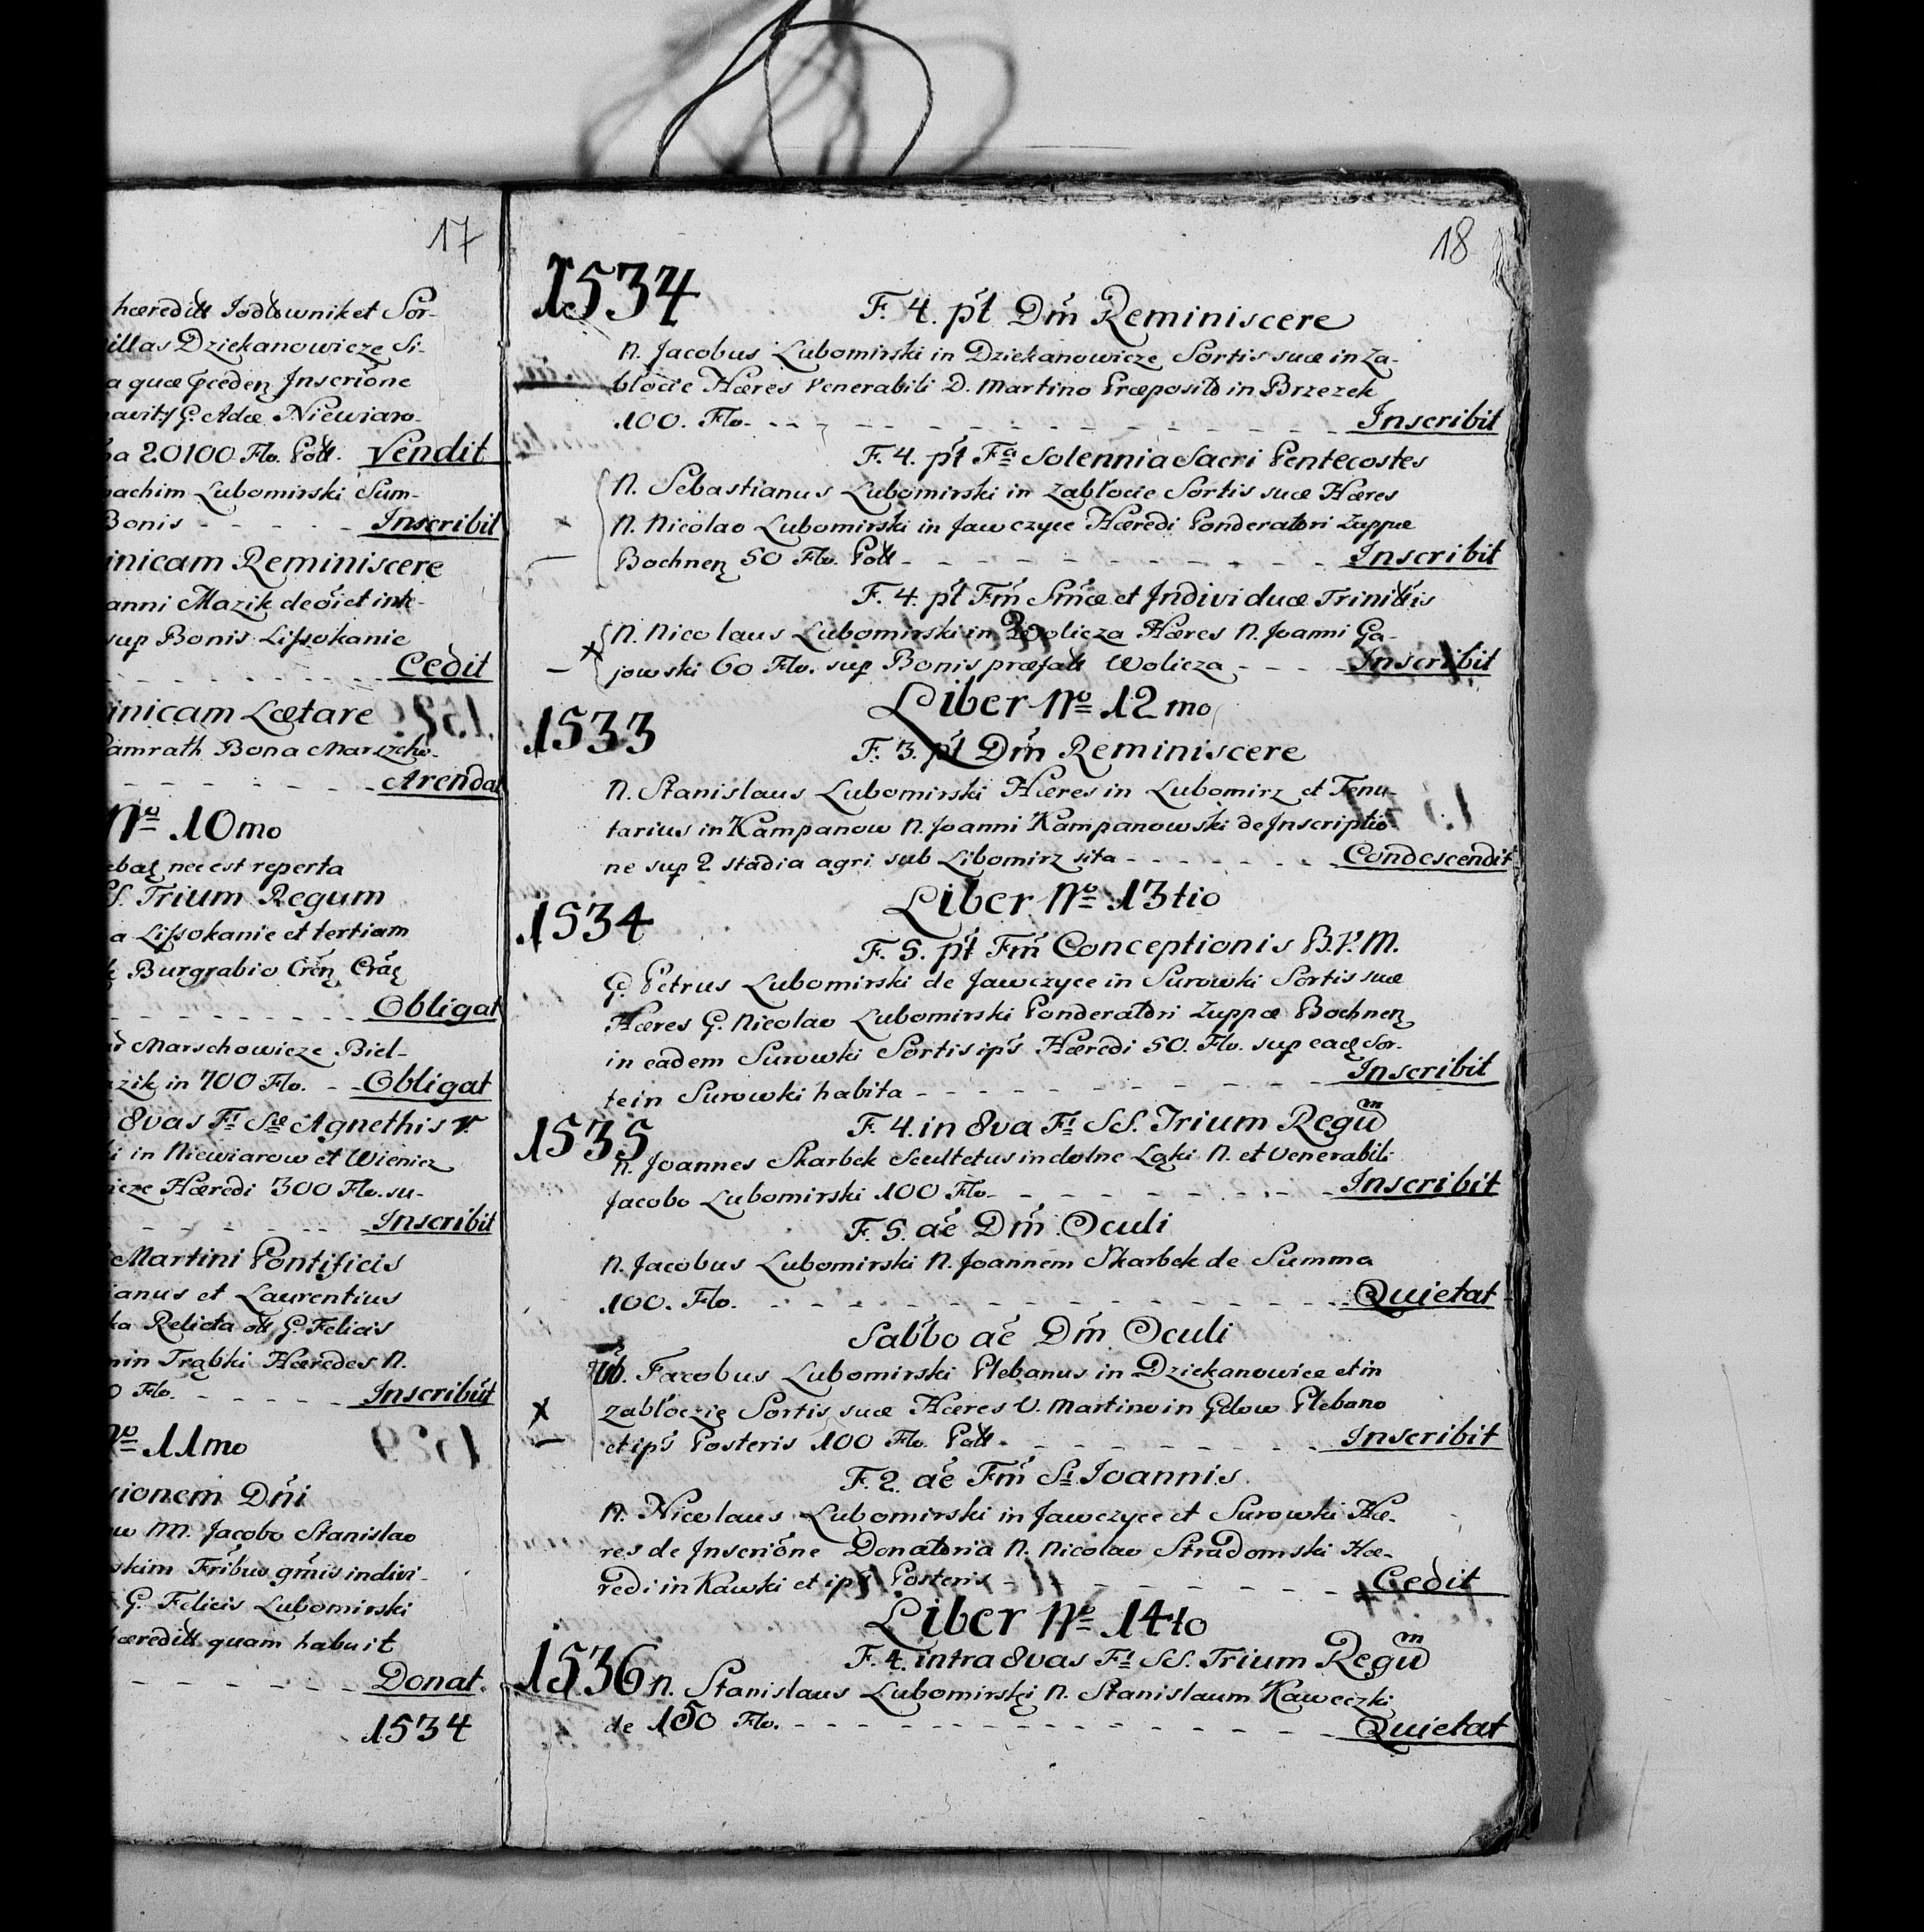 17
hæreditt Jodłownik et Sor-
illas Dziekanowicze Si-
a quæ pceden Inscrióne
navit G. Adæ Niewiaro-
a 20100 Flo. Poll. Vendit
oachim Lubomirski Sum-
Bonis - - - - - Inscribit
inicam Reminiscere
anni Mazik de oi et inte-
sup Bonis Lissokanie
- - - - - - - - Cedit
inicam Lætare
amrath Bona Marszcho-
- - - - - - - - Arendat
No 10mo
ebat nec est reperta
S. Trium Regum
a Lissokanie et tertiam
Burgrabio Cren Crac
- - - - - - - - Obligat
Marschowicze Biel-
zik in 700 Flo. - - Obligat
8vas Fi Sæ Agnethis V.
i in Niewiarow et Wienicz
icze Hæredi 300 Flo. su-
- - - - - - - - Inscribit
Martini Pontificis
ianus et Laurentius
ka Relicta ott G. Felicis
min Trąbki Hæredes N.
0 Flo. - - - - - Inscribút
No 11mo
sionem Dńi
w NN. Jacobo Stanislao
skim Fribus gmis indivi-
G. Felicis Lubomirski
hæreditt quam habuit
- - - - - - - - Donat.
1534
18
1534
F. 4. pt Dm Reminiscere
N. Jacobus Lubomirski in Dziekanowicze Sortis suæ in Za-
błocie Hæres Venerabili D. Martino Præposito in Brzezek
100. Flo. - - - - - - - - Inscribit
F. 4. pt Fa Solennia Sacri Pentecostes
N. Sebastianus Lubomirski in Zabłocie Sortis suæ Hæres
N. Nicolao Lubomirski in Jawczyce Hæredi Ponderatori Zuppæ
Bochnen 50 Flo. Poll - - - - - - - - Inscribit
F. 4. pt Fm Smæ et Individuæ Trinittis
N. Nicolaus Lubomirski in Wolicza Hæres N. Joanni Ga-
jowski 60 Flo. sup Bonis præfatt Wolicza - - - - Inscribit
Liber No 12mo
1533
F. 3. pt Dm Reminiscere
N. Stanislaus Lubomirski Hæres in Lubomirz et Tenu-
tarius in Kampanow N. Joanni Kampanowski de Inscriptio
ne sup 2 stadia agri sub Libomirz sita - - - - - - Condescendit
Liber No 13tio
1534
F. 5. pt Fm Conceptionis B.V.M.
G. Petrus Lubomirski de Jawczyce in Surowki Sortis suæ
Hæres G. Nicolao Lubomirski Ponderatori Zuppæ Bochnen
in eadem Surowki Sortis ips Hæredi 50. Flo. sup ead Sor-
te in Surowki habita - - - - - - - - Inscribit
1535
F. 4. in 8va Fi SS. Trium Regum
N. Joannes Skarbek Scultetus in dolne Łąki N. et Venerabili
Jacobo Lubomirski 100 Flo - - - - - - - - Inscribit
F. 5. aé Dm Oculi
N. Jacobus Lubomirski N. Joannem Skarbek de Summa
100. Flo. - - - - - - - - Quietat
Sabbo aé Dm Oculi
Vb. Jacobus Lubomirski Plebanus in Dziekanowice et in
Zabłoczie Sortis suæ Hæres V. Martino in Gdow Plebano
et ips Posteris 100 Flo. Poll - - - - - - - - Inscribit
F. 2. aé Fm Si Joannis
N. Nicolaus Lubomirski in Jawczyce et Surowki Hæ-
res de Inscrióne Donatoria N. Nicolao Stradomski Hæ-
redi in Kawki et ips Posteris - - - - - - - - Cedit
Liber No 14to
F. 4. intra 8vas Fi SS. Trium Regum
1536 N. Stanislaus Lubomirski N. Stanislaum Kaweczki
de 150 Flo. - - - - - - - - Quietat